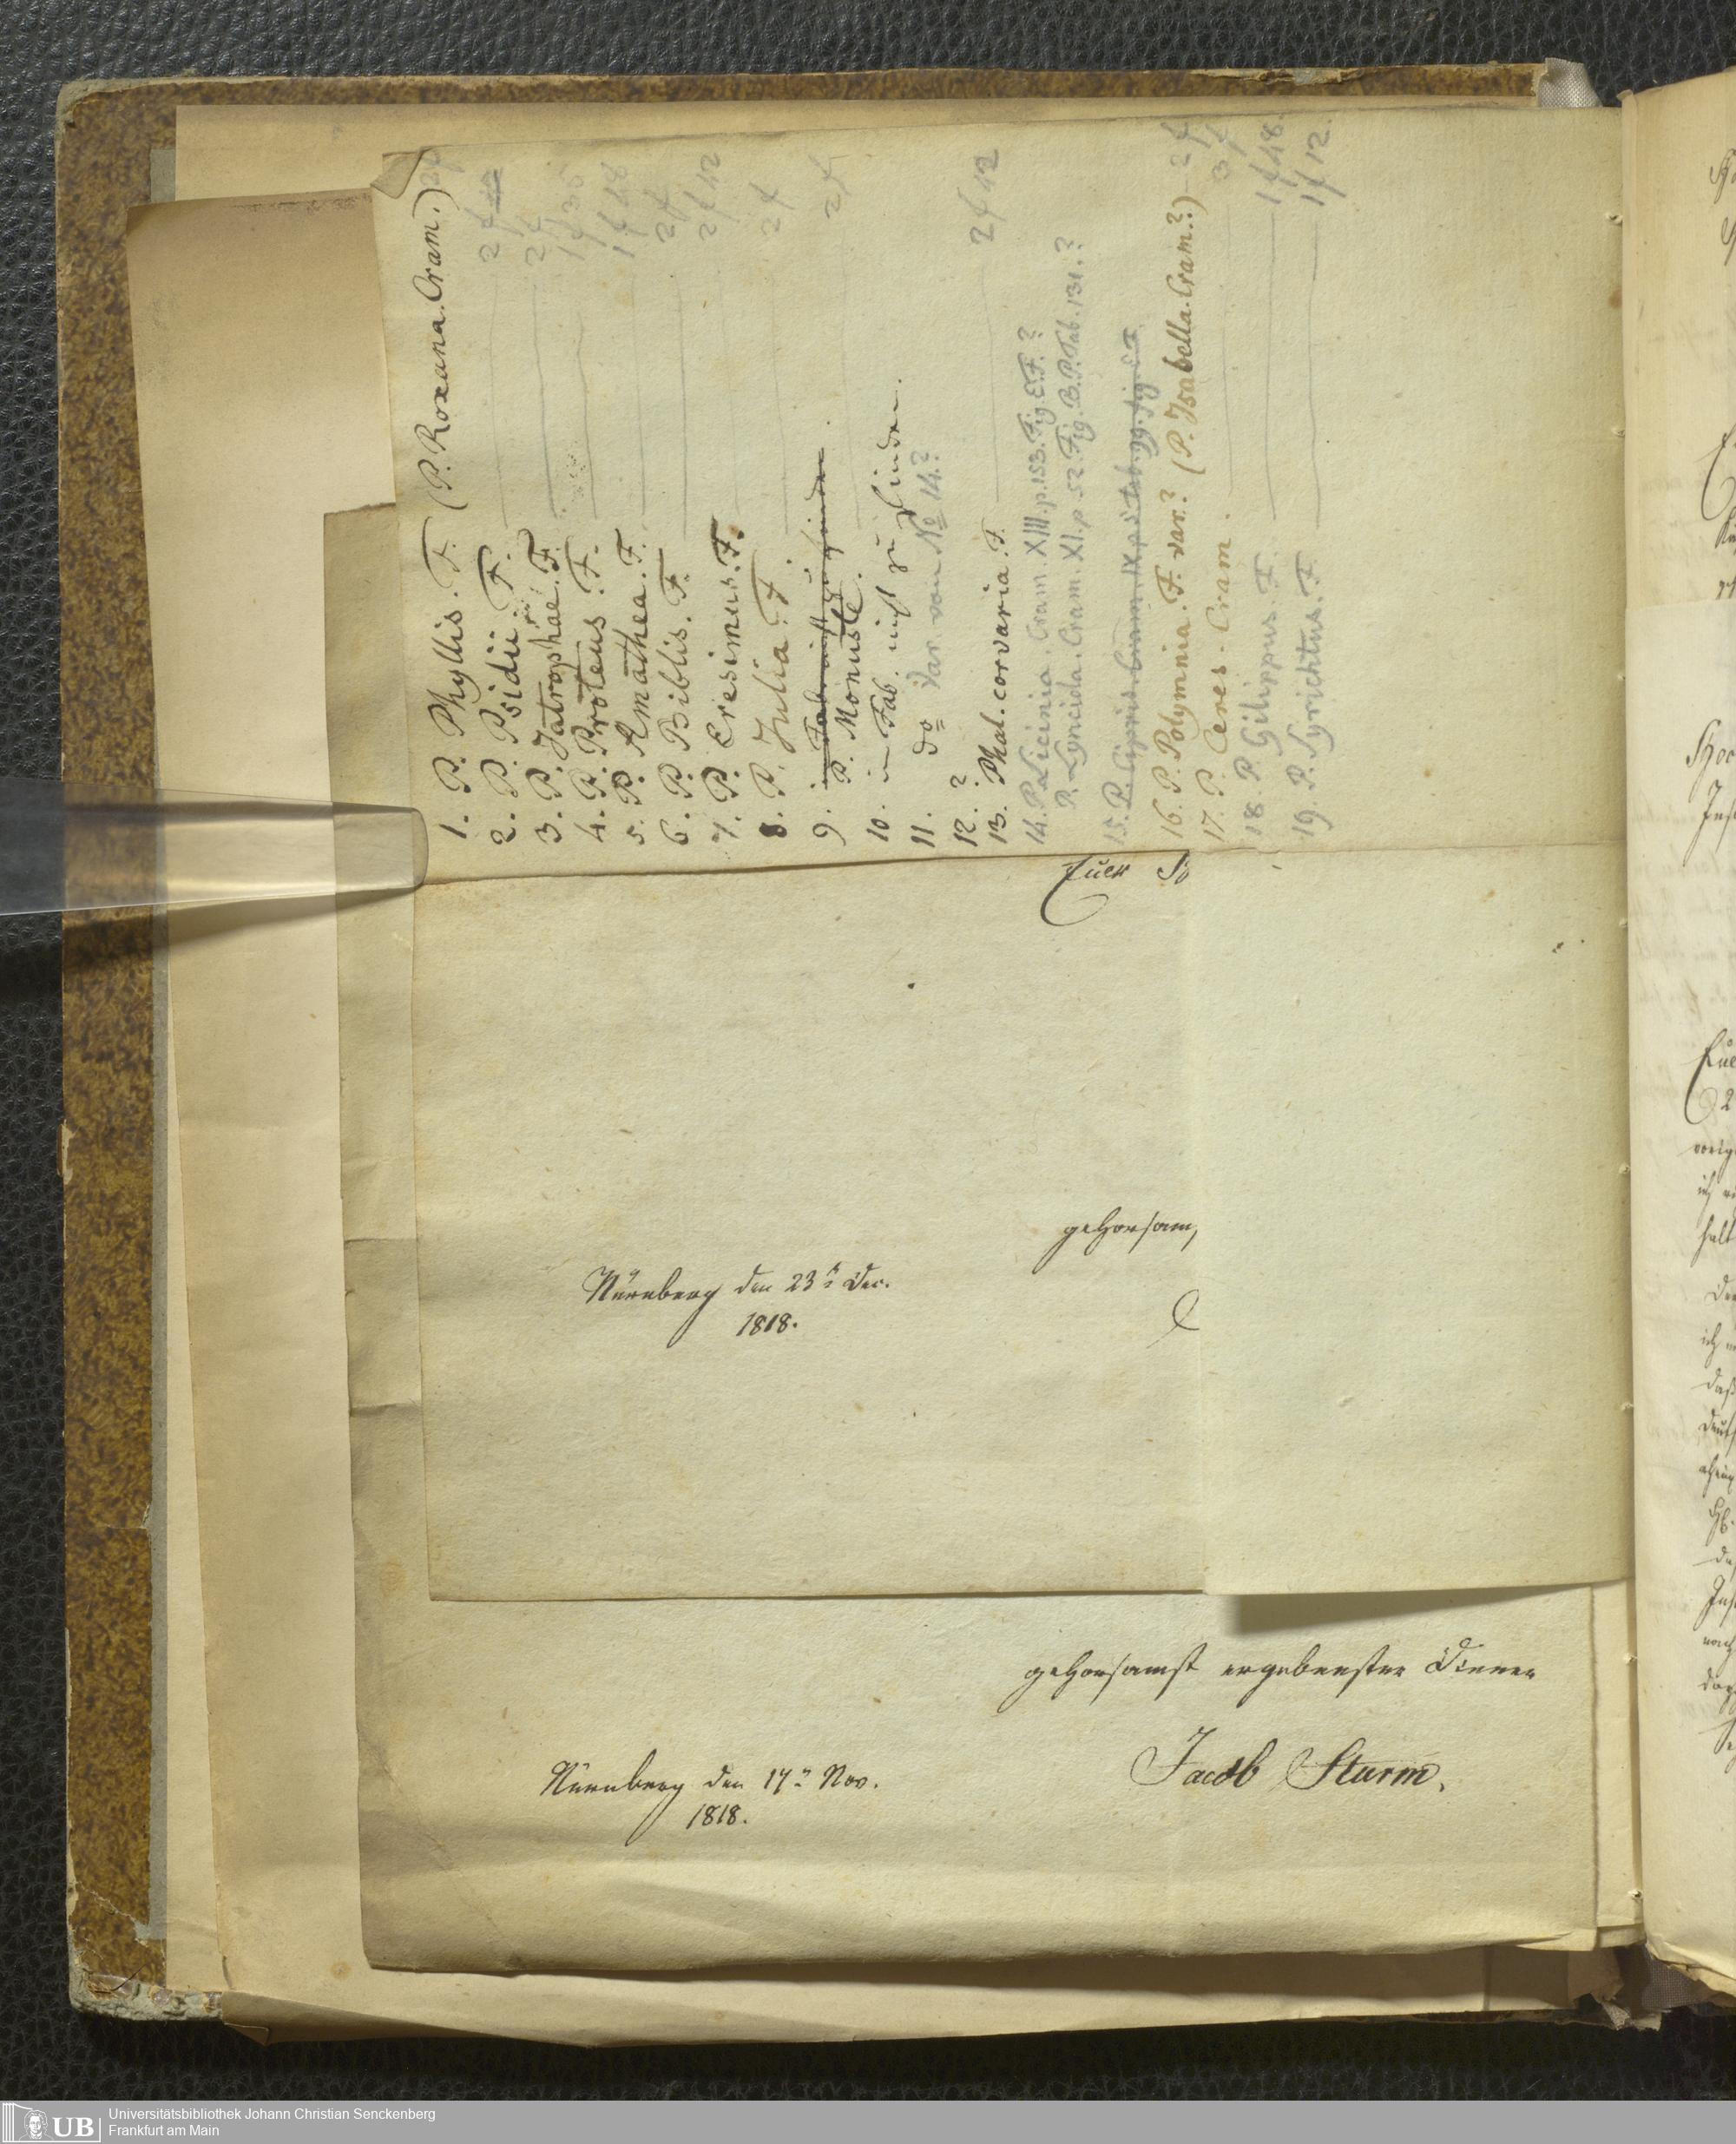 1. P. Phyllis. F. (P. Roxana. Cram.) 2 f
2. P. Psidii. F. 2 f
3. P. Jatrophae. F. 2 f
4. P. Proteus. F. 1 f 36
5. P. Amathea. F. 1 f 48
6. P. Biblis. F. 2 f
7. P. Eresimus. F. 2 f 12
8. P. Julia. F. 2 f
9. in Fab. nicht zu finden.
P. Monuste. 2 f
10. in Fab. nicht zu finden.
11. do Var von No 14.?
12. ?
13. Phal. corvaria. F. 2 f 12
14. P. Licinia. Cram. XIII. p. 153. Fig. E.F.?
P. Lyncida. Cram. XI. p. 52 Fig. B. P. Tab. 131.?
15. P. Cipris. Cram. IX. p. 5 tab. 99. fig. E.F.
16. P. Polymnia. F. var.? (P. Isabella. Cram.?) 2 f
17. P. Ceres. Cram. 3 f
18. P. Gilippus. F. 1 f 48.
19. P. Syrichtus. F. 1 f 12.
Euer
gehorsam
Nürnberg den 23n Dec.
1818.
gehorsamst ergebenster Diener
Jacob Sturm.
Nürnberg den 17n Nov.
1818.
UB
Universitätsbibliothek Johann Christian Senckenberg
Frankfurt am Main